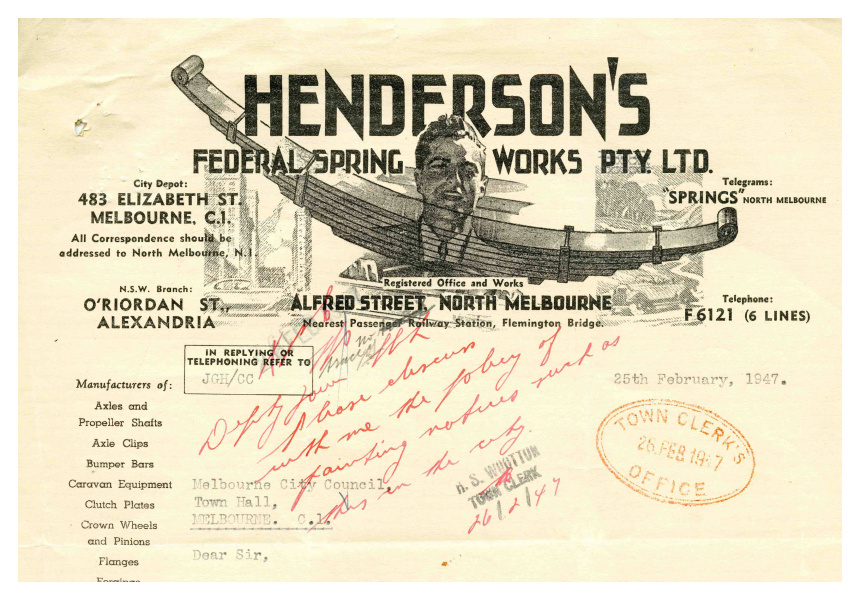 HENDERSON'S
FEDERAL SPRING WORKS PTY. LTD.
City Depot:
483 ELIZABETH ST.
MELBOURNE, C.1.
All Correspondence should be
addressed to North Melbourne, N.1.
N.S.W. Branch:
O'RIORDAN ST.,
ALEXANDRIA
Telegrams:
"SPRINGS" NORTH MELBOURNE
Registered Office and Works
ALFRED STREET, NORTH MELBOURNE
Nearest Passenger Railway Station, Flemington Bridge.
Telephone:
F 6121 (6 LINES)
IN REPLYING OR
TELEPHONING REFER TO
JGH/CC
25th February, 1947.
Please discuss
with me the policy of
painting notices such as
this in the city.
H. S. WOOTTON
TOWN CLERK
26/2/47
TOWN CLERK'S
26 FEB 1947
OFFICE
Manufacturers of:
Axles and
Propeller Shafts
Axle Clips
Bumper Bars
Caravan Equipment
Clutch Plates
Crown Wheels
and Pinions
Flanges
Forgings
Melbourne City Council,
Town Hall,
MELBOURNE. C.1.
Dear Sir,